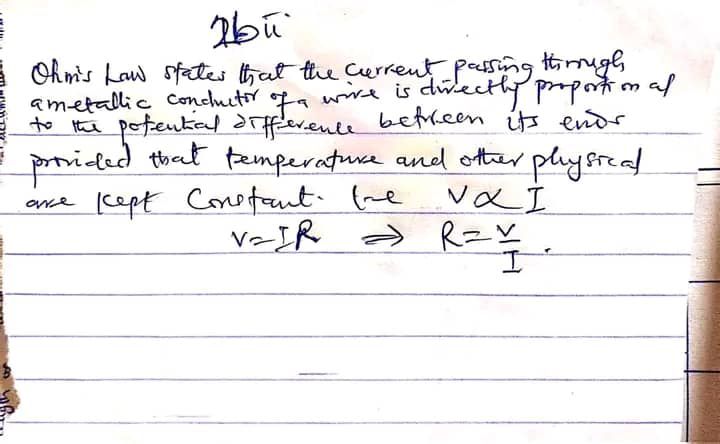 2bii
Ohm's Law states that the current passing through
a metallic conductor of a wire is directly proportional
to the potential difference between its ends
provided that temperature and other physical
are kept constant. i.e V∝I
V=IR ⇒ R=V/I.